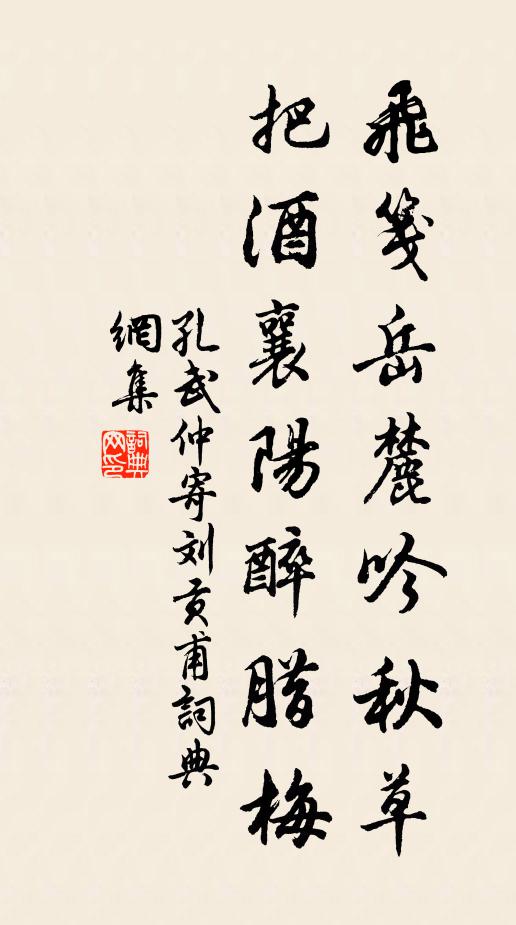 飛箋岳麓吟秋草
把酒襄陽醉腊梅
孔武仲寄刘贡甫詞典
網集
詞典
网印